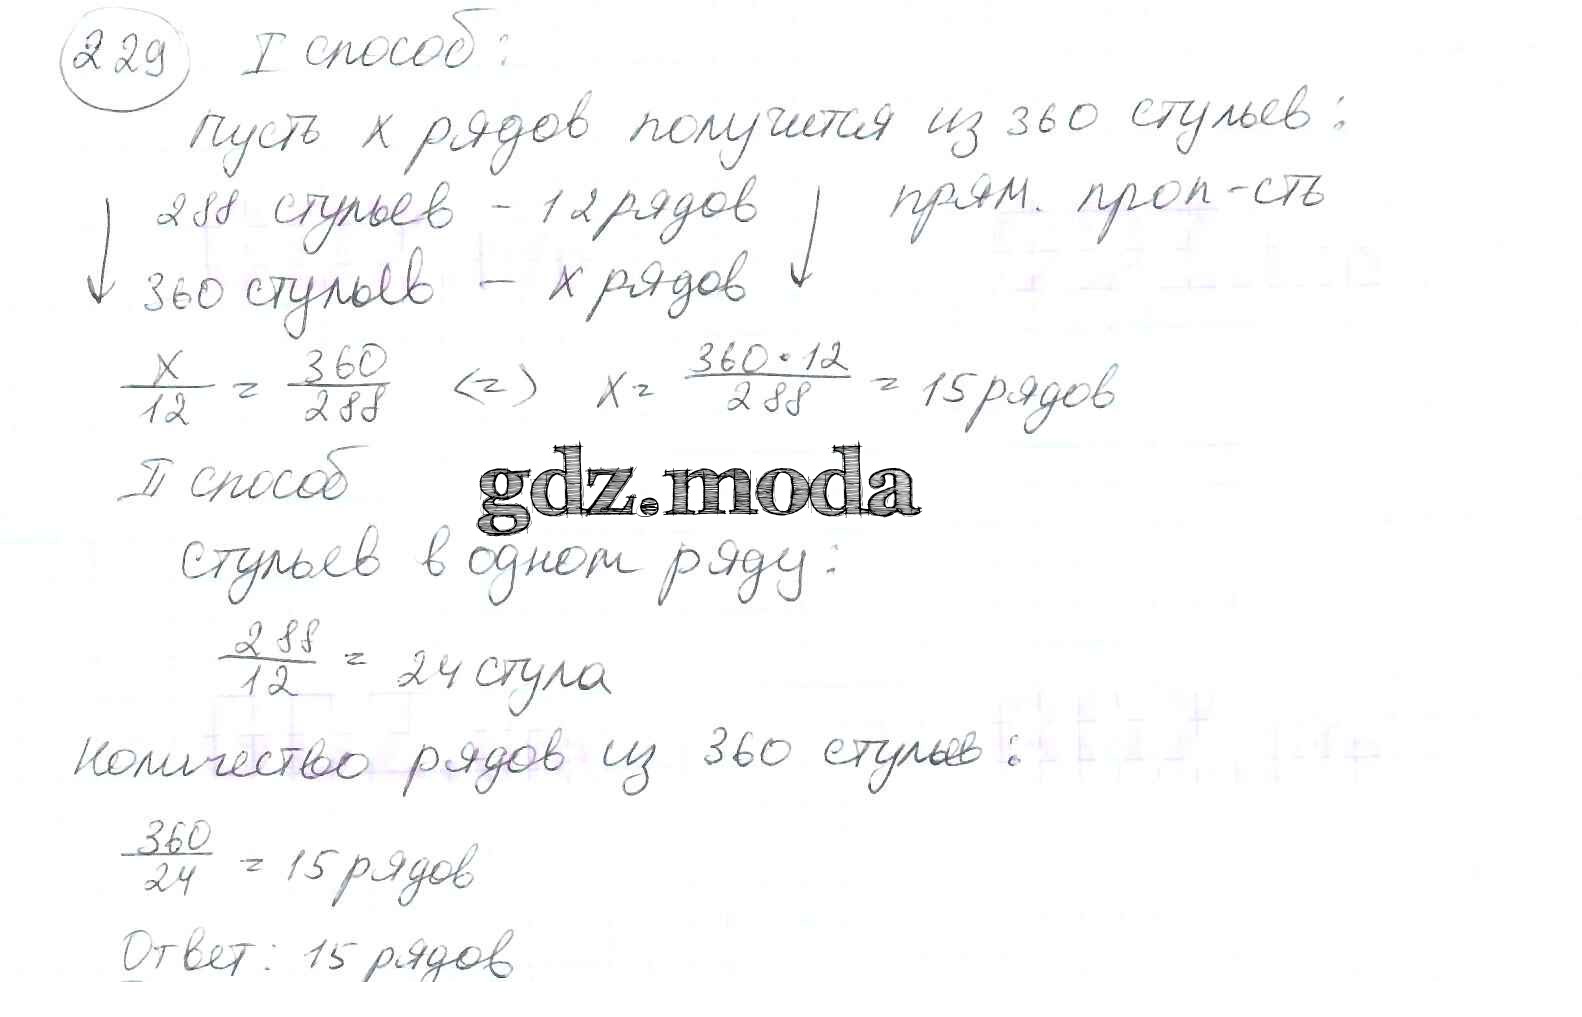 229 I способ:
Пусть x рядов получится из 360 стульев:
288 стульев - 12 рядов прям. проп-сть
360 стульев - x рядов
x/12 = 360/288 <=> x = 360·12/288 = 15 рядов
II способ
gdz.moda
Стульев в одном ряду:
288/12 = 24 стула
Количество рядов из 360 стульев:
360/24 = 15 рядов
Ответ: 15 рядов